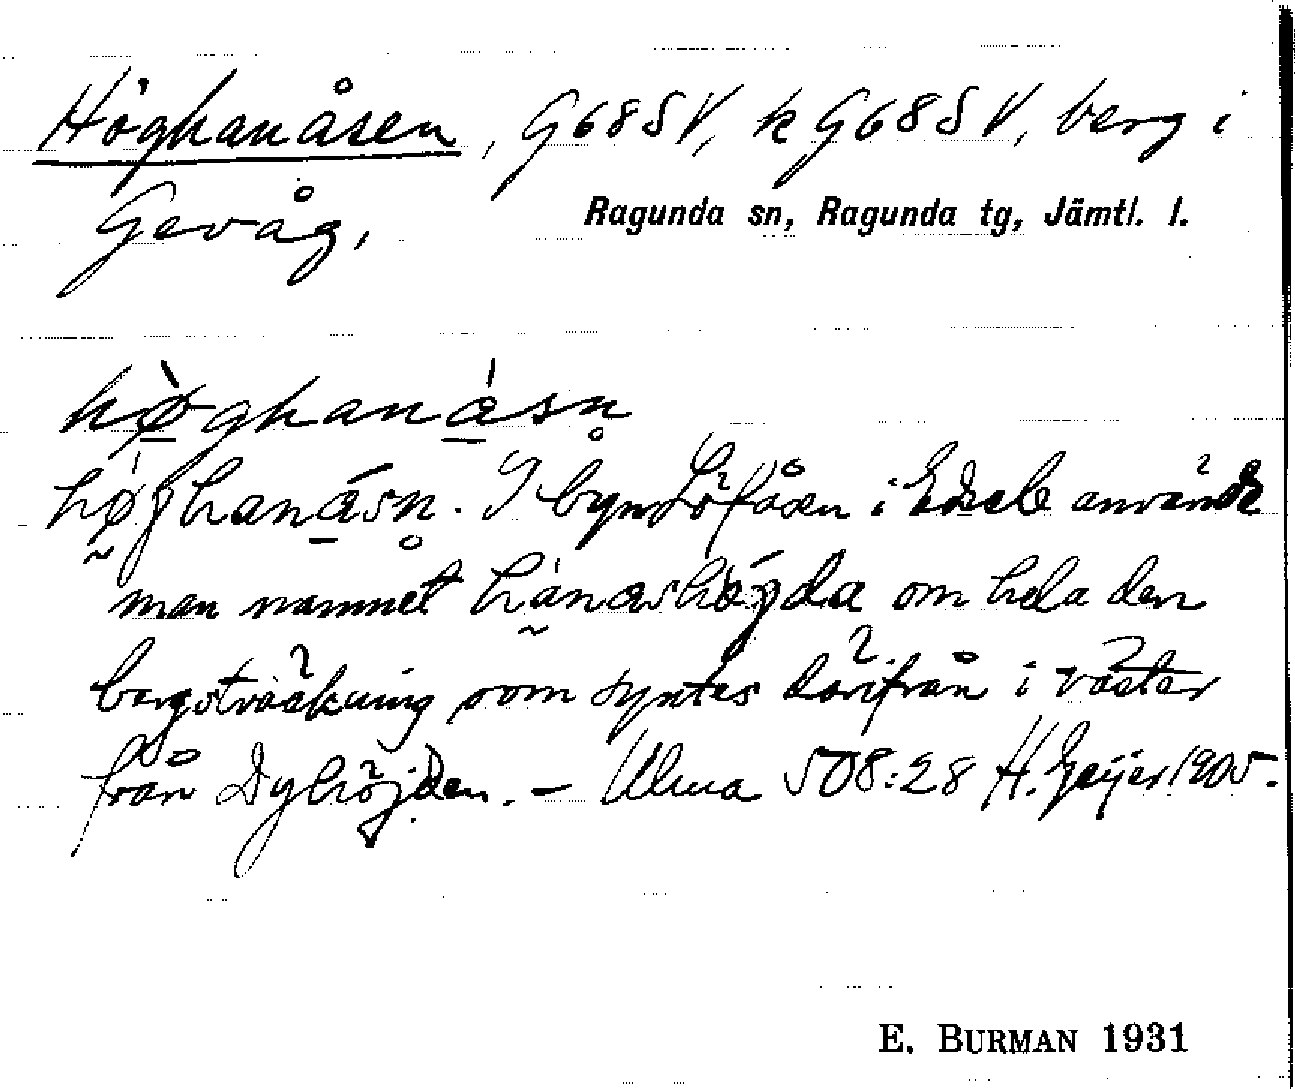 Höghanåsen, G68SV, k G68SV, berg i
Gevåg, Ragunda sn, Ragunda tg, Jämtl. l.
hø̀ghanásn̥
hø̀ghanásn̥. I byn Löfåsen i Edsele använde
man namnet hánashøgda om hela den
bergsträckning som syntes därifrån i väster
från Dyhöjden. – Ulma 508:28 H. Geijer 1905.
E. BURMAN 1931